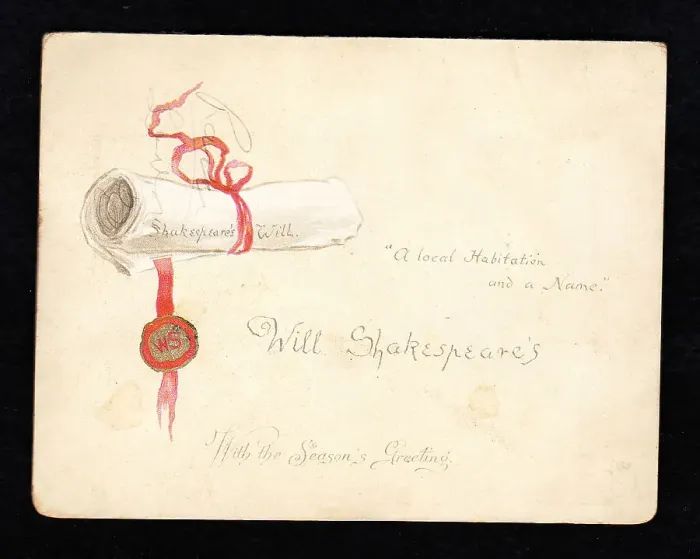 Shakespeare's Will.
"A local Habitation
and a Name."
Will Shakespeare's
WS
With the Season's Greeting.